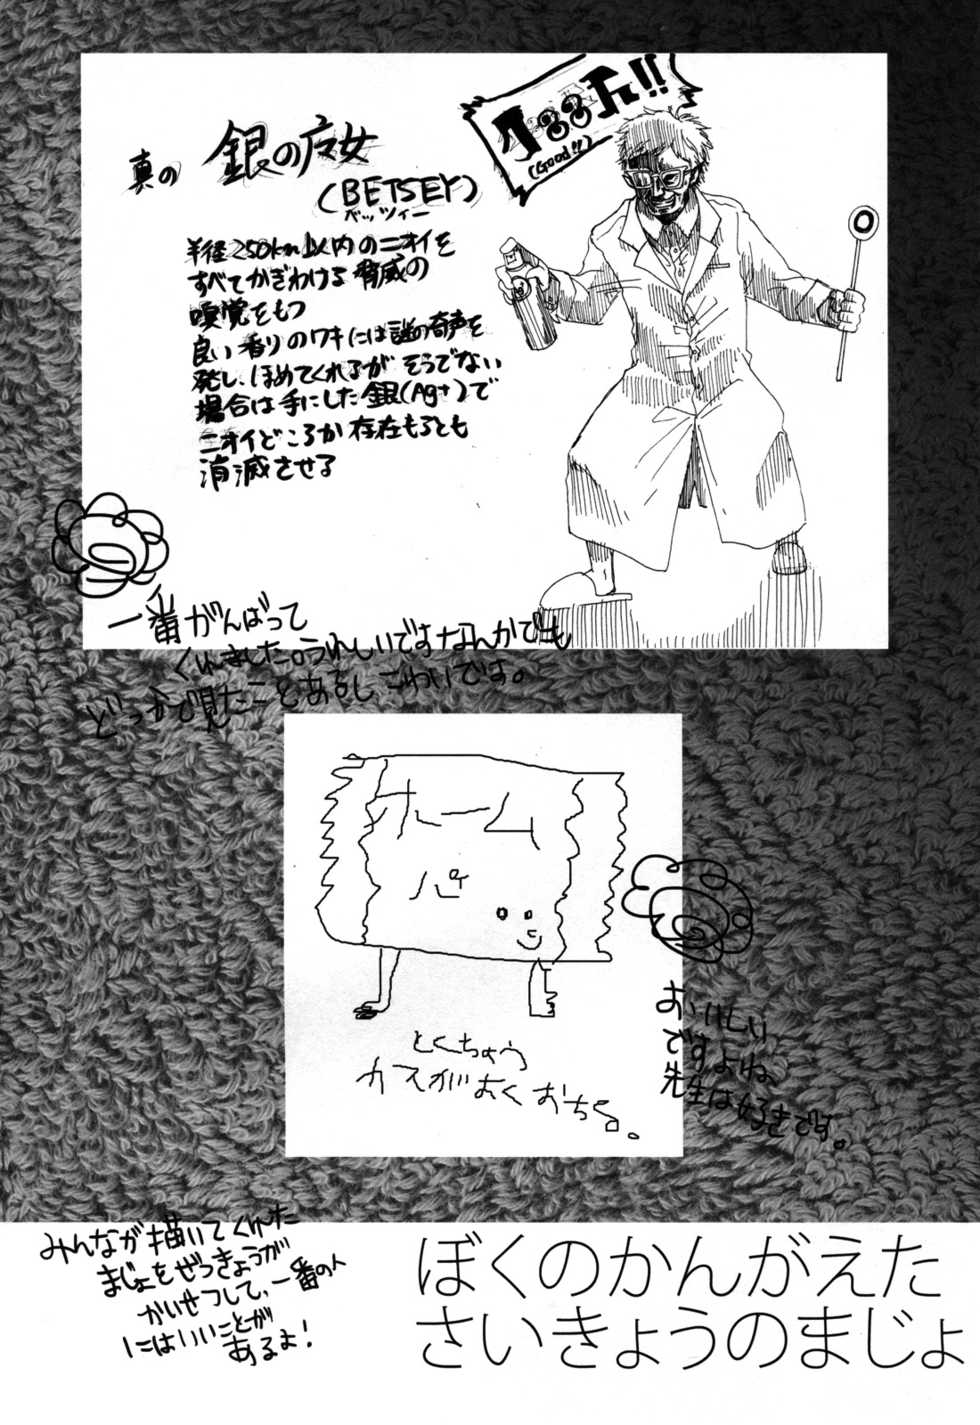 真の 銀の魔女
(BETSEY)
ベッツィー
(Good!!)
半径250km以内のニオイを
すべてかぎわける脅威の
嗅覚をもつ
良い香りのワキには謎の奇声を
発し、ほめてくれるが そうでない
場合は手にした銀(Ag+)で
ニオイどころか存在もろとも
消滅させる
一番がんばって
くれました。うれしいですなんかでも
どっかで見たことあるしこわいですね。
ホーム
パイ
とくちょう
カスがおくおちる。
おいしい
ですよね。
先生は好きです。
みんなが描いてくれた
まじょをぜっきょうが
かいせつして、一番の人
にはいいことが
あるよ!
ぼくのかんがえた
さいきょうのまじょ